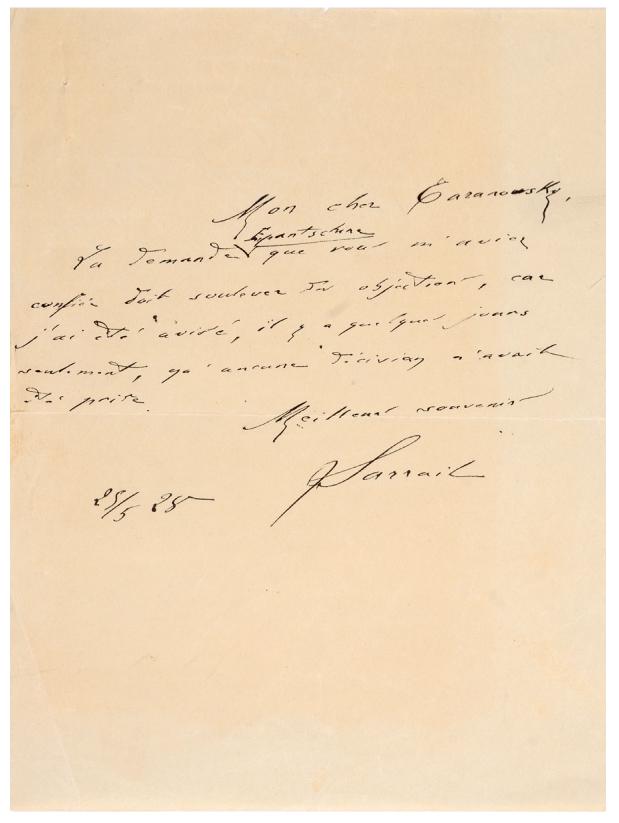 Mon cher Taranowsky,
Epantschine
La demande que vous m'aviez
confiée doit soulever des objections, car
j'ai été avisé, il y a quelques jours
seulement, qu'aucune décision n'avait
été prise.
Meilleurs souvenirs
Sarrail
28